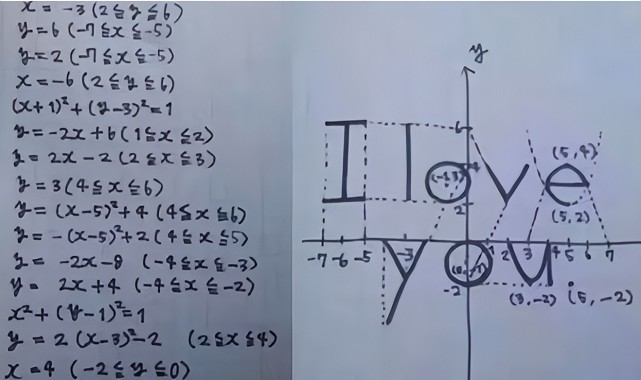 x = -3 (2≦y≦6)
y = 6 (-7≦x≦-5)
y = 2 (-7≦x≦-5)
x = -6 (2≦y≦6)
(x+1)²+(y-3)²=1
y = -2x+6 (1≦x≦2)
y = 2x-2 (2≦x≦3)
y = 3 (4≦x≦6)
y = (x-5)²+4 (4≦x≦6)
y = -(x-5)²+2 (4≦x≦5)
y = -2x-8 (-4≦x≦-3)
y = 2x+4 (-4≦x≦-2)
x²+(y-1)²=1
y = 2(x-3)²-2 (2≦x≦4)
x=4 (-2≦y≦0)
y
6
(5,4)
2
(5,2)
-7 -6 -5 -3 1 2 3 4 5 6 7
-2
(3,-2) (5,-2)